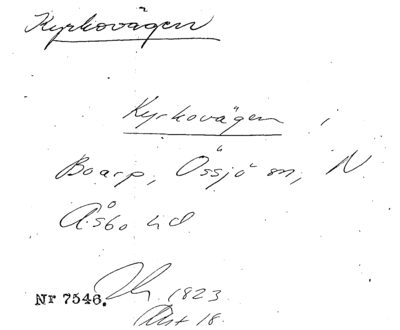 Kyrkovägen
Kyrkovägen i
Boarp, Össjö sn, N
Åsbo hd
Nr 7546. 1823
18.